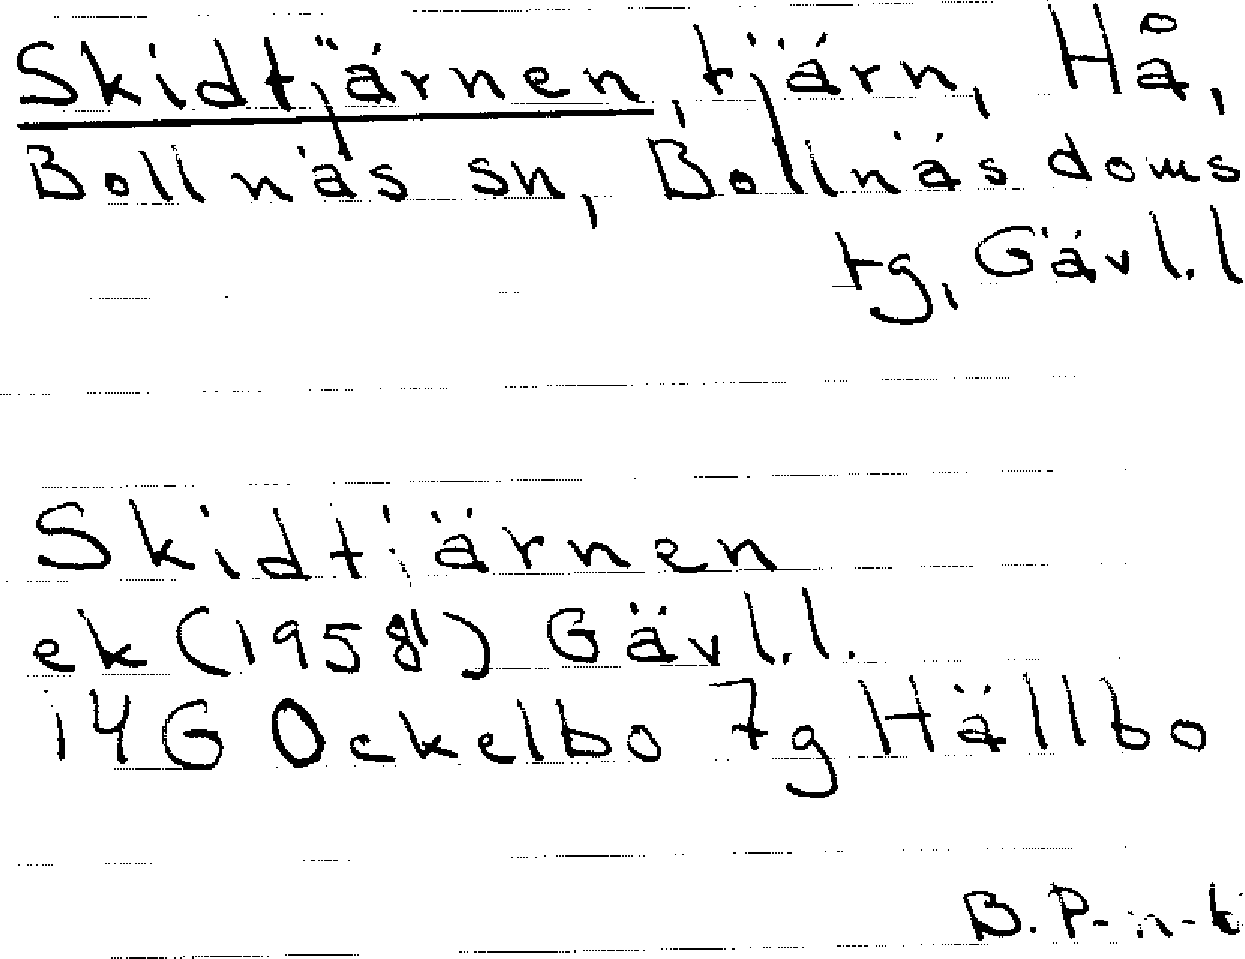 Skidtjärnen, tjärn, Hå,
Bollnäs sn, Bollnäs doms
tg, Gävl.l
Skidtjärnen
ek (1958) Gävl.l.
14G Ockelbo 7g Hällbo
B. P-n-b